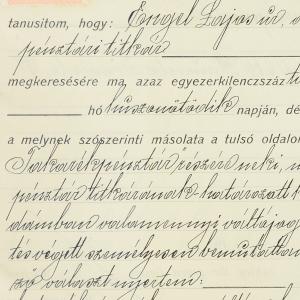 tanusitom, hogy: Engel Lajos úr, a
pénztári titkár
megkeresésére ma, azaz egyezerkilenczszáz ti
hó huszonötödik napján, dé
a melynek szószerinti másolata a tulsó oldalon
Takarékpénztár részére neki, m
pénztár titkárának határozott k
dámban valamennyi váltójog
tés végett személyesen bemutattam
ző választ nyertem: